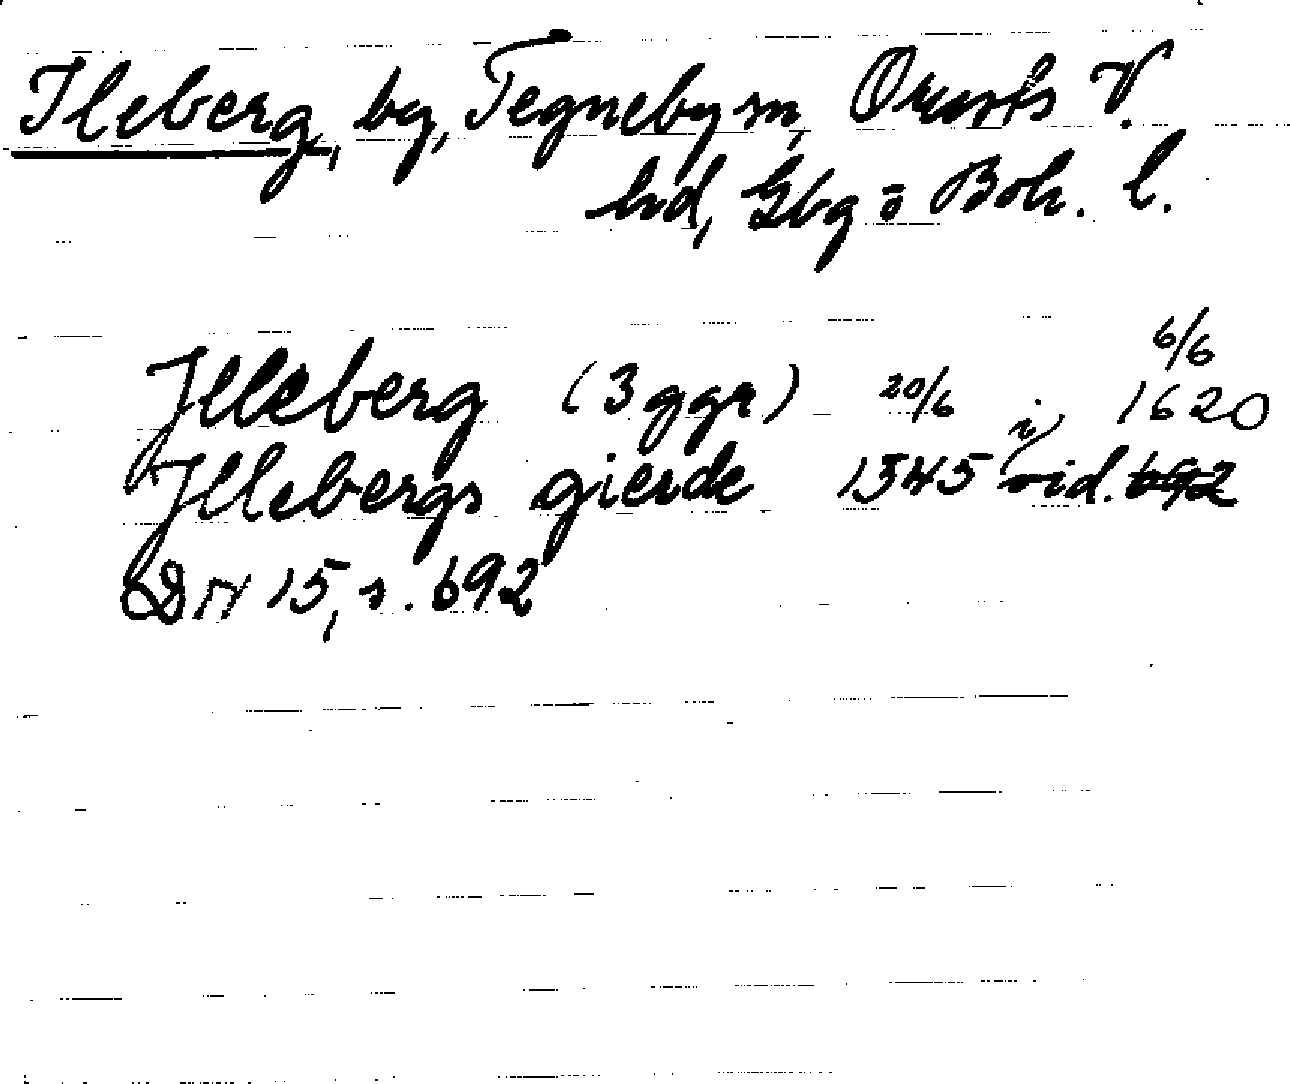 Ileberg, by, Tegneby sn, Orusts V.
hd, Gbg o Boh. l.
6/6
Jlleberg (3 ggr) 20/6 i 1620
Jllebergs gierde 1345 vid. 692
DN 15, s. 692